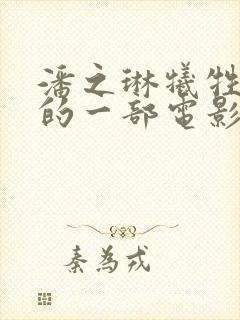 潘之琳犧牲
的一部電影
秦為戎